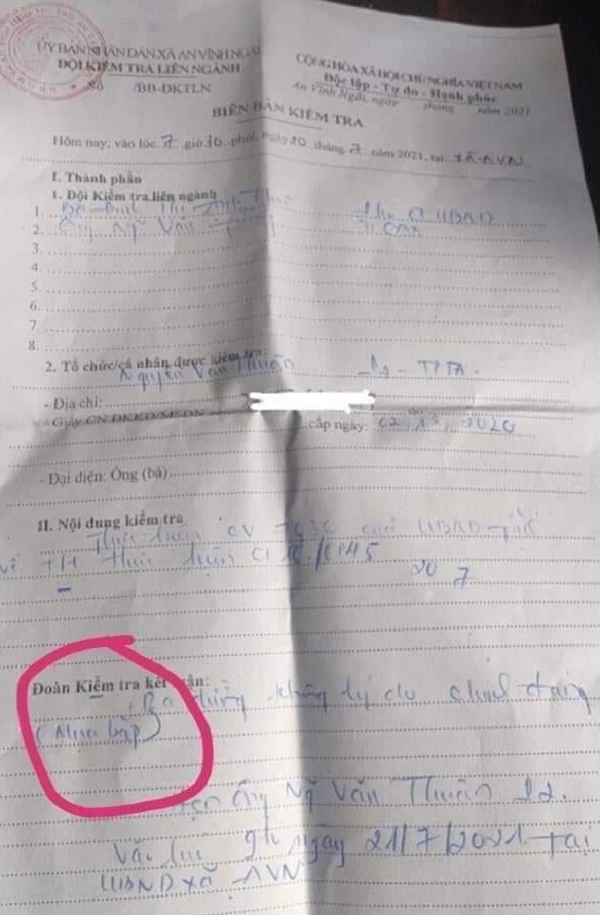 ỦY BAN NHÂN DÂN XÃ AN VĨNH NGÃI
ĐỘI KIỂM TRA LIÊN NGÀNH
Số /BB-ĐKTLN
CỘNG HÒA XÃ HỘI CHỦ NGHĨA VIỆT NAM
Độc lập - Tự do - Hạnh phúc
An Vĩnh Ngãi, ngày tháng năm 2021
BIÊN BẢN KIỂM TRA
Hôm nay, vào lúc 7 giờ 30 phút, ngày 20 tháng 7 năm 2021, tại xã AVN
I. Thành phần
1. Đội Kiểm tra liên ngành
1. Bà Đinh Thị UBND
2. Ông Ng Văn
3.
4.
5.
6.
7.
8.
2. Tổ chức/cá nhân được kiểm tra:
Nguyễn Văn Thuận TPTA
- Địa chỉ:
- Giấy CN ĐKKD cấp ngày: 2020
- Đại diện: Ông (bà)
II. Nội dung kiểm tra
Thực hiện CV của UBND
về thực hiện
20 7
Đoàn Kiểm tra kết luận:
Ra đường không lý do chính đáng
(Mua bắp)
Hẹn ông Ng Văn Thuận
Vào lúc 9h ngày 21/7/2021 tại
UBND xã AVN